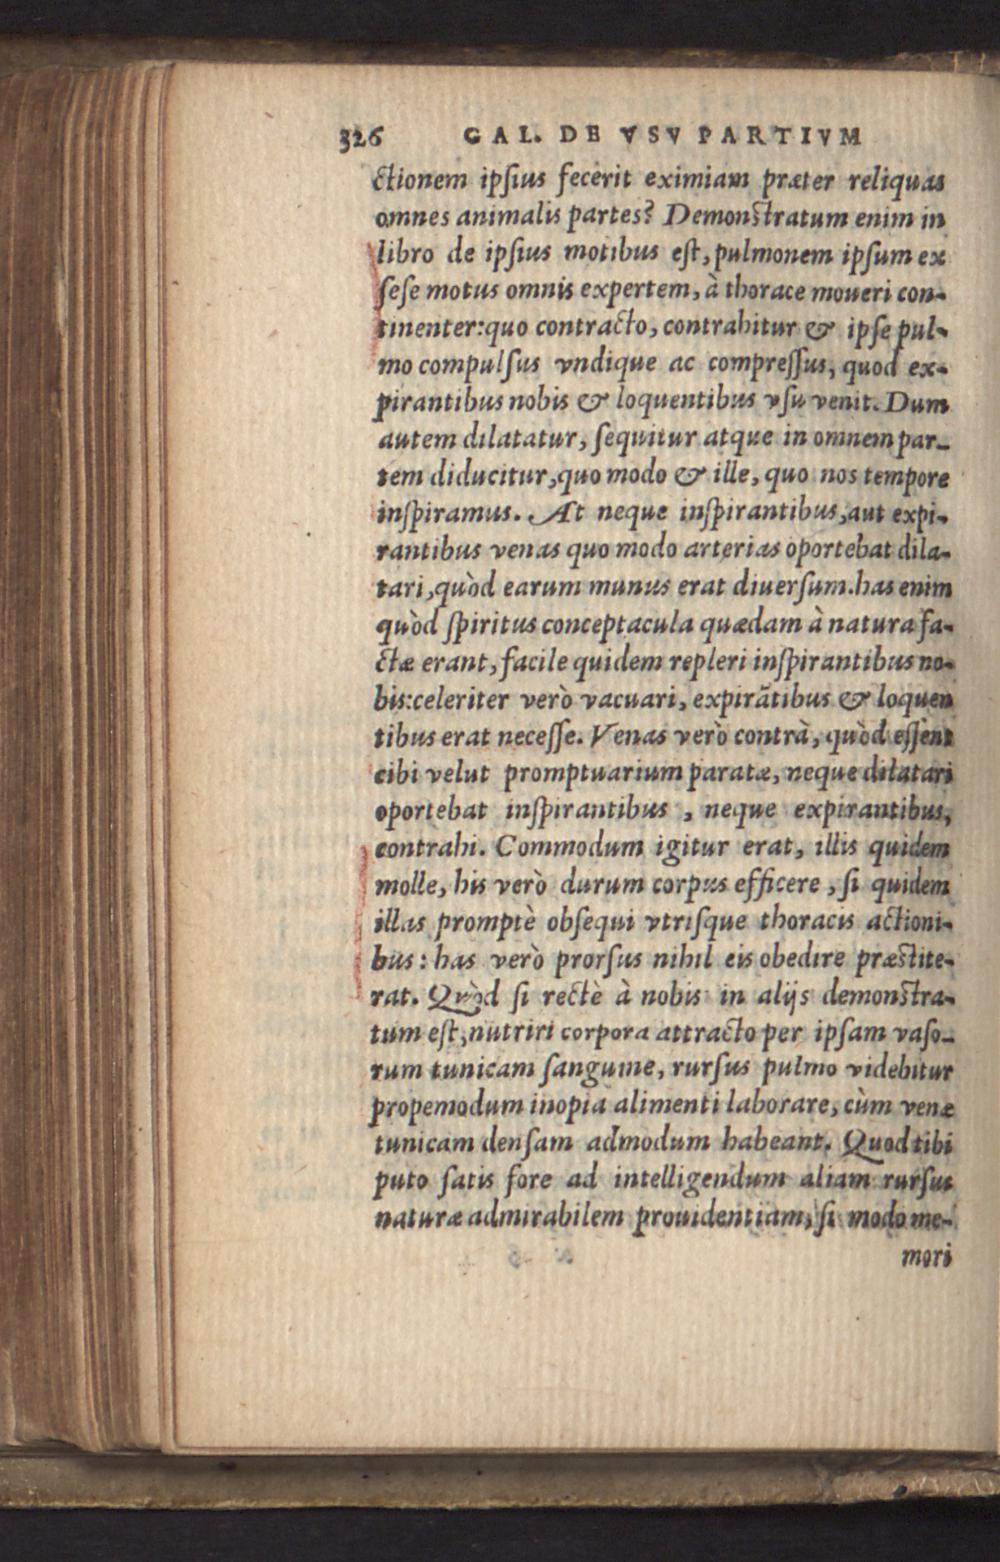 326 GAL. DE VSV PARTIVM
ctionem ipſius fecerit eximiam præter reliquas
omnes animalis partes? Demonſtratum enim in
libro de ipſius motibus eſt, pulmonem ipſum ex
ſeſe motus omnis expertem, à thorace moueri con-
tinenter: quo contracto, contrahitur & ipſe pul-
mo compulſus vndique ac compreſſus, quod ex-
pirantibus nobis & loquentibus vſu venit. Dum
autem dilatatur, ſequitur atque in omnem par-
tem diducitur, quo modo & ille, quo nos tempore
inſpiramus. At neque inſpirantibus, aut expi-
rantibus venas quo modo arterias oportebat dila-
tari, quòd earum munus erat diuerſum. has enim
quòd ſpiritus conceptacula quædam à natura fa-
ctæ erant, facile quidem repleri inſpirantibus no-
bis: celeriter verò vacuari, expirãtibus & loquen
tibus erat neceſſe. Venas verò contrà, quòd eſſent
cibi velut promptuarium paratæ, neque dilatari
oportebat inſpirantibus , neque expirantibus,
contrahi. Commodum igitur erat, illis quidem
molle, his verò durum corpus efficere, ſi quidem
illas promptè obſequi vtriſque thoracis actioni-
bus: has verò prorſus nihil eis obedire præſtite-
rat. Quòd ſi rectè à nobis in alijs demonſtra-
tum eſt, nutriri corpora attracto per ipſam vaſo-
rum tunicam ſanguine, rurſus pulmo videbitur
propemodum inopia alimenti laborare, cùm venæ
tunicam denſam admodum habeant. Quod tibi
puto ſatis fore ad intelligendum aliam rurſus
naturæ admirabilem prouidentiam, ſi modo me-
mori